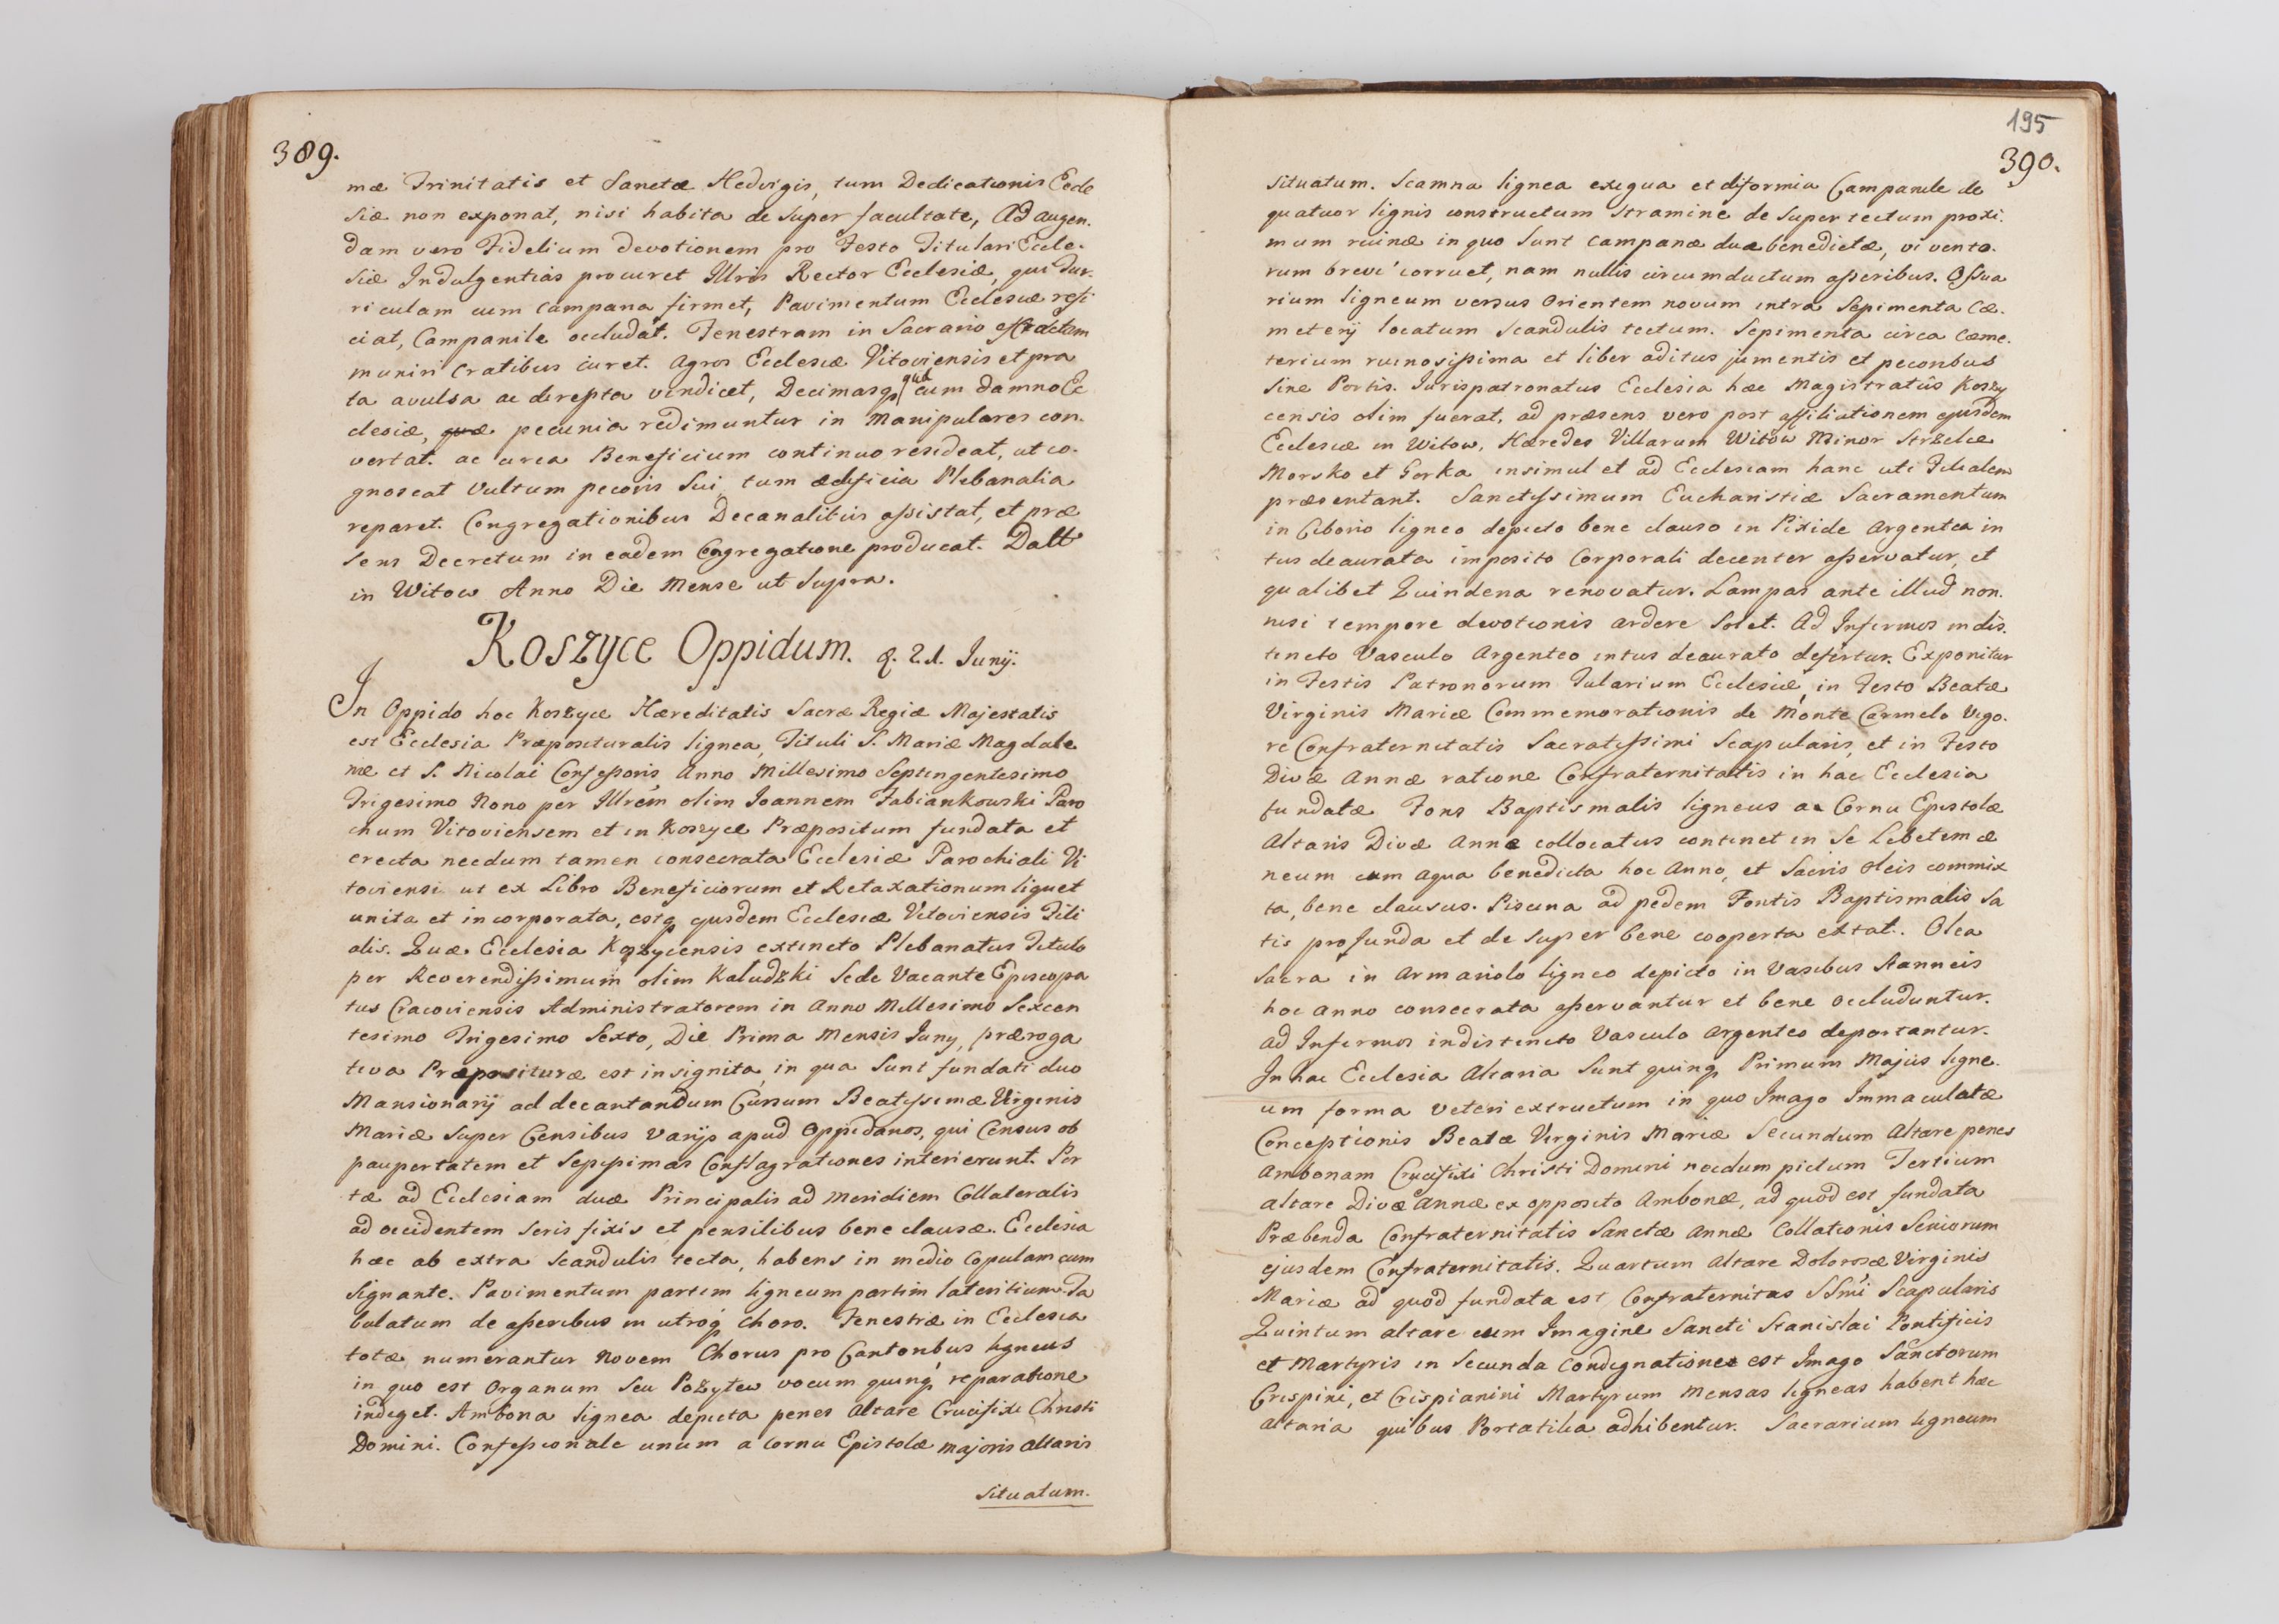 389.
mæ Trinitatis et Sanctæ Hedvigis, tum Dedicationis Eccle
siæ non exponat, nisi habita de super facultate, Ad augen.
dam vero Fidelium devotionem pro Festo Titulari Eccle.
siæ Indulgentias procuret Illris Rector Ecclesiæ, qui Tur.
riculam cum campana firmet, Pavimentum Ecclesiæ refi
ciat, Campanile occludat. Fenestram in Sacrario
muniri Cratibus curet. Agros Ecclesiæ Vitoviensis et pra
ta avulsa ac derepta vendicet, Decimasq quæ cum damno Ec
clesiæ, quæ pecunia redimuntur in Manipulares con.
vertat. ac circa Beneficium continuo resideat, ut co.
gnoscat Vultum pecoris Sui, tum ædificia Plebanalia
reparet. Congregationibus Decanalibus assistat, et præ
sens Decretum in eadem Congregatione producat. Datt
in Witow Anno Die Mense ut Supra.
Koszyce Oppidum. 21. Junij.
In Oppido hoc Koszyce Hæreditatis Sacræ Regiæ Majestatis
est Ecclesia Præposituralis lignea, Tituli S. Mariæ Magdale
næ et S. Nicolai Confessoris, Anno Millesimo Septingentesimo
Trigesimo Nono per Illrem olim Joannem Fabiankowski Paro
chum Vitoviensem et in Koszyce Præpositum fundata et
erecta necdum tamen consecrata Ecclesiæ Parochiali Vi
toviensi ut ex Libro Beneficiorum et Retaxationum liquet
unita et incorporata, estq ejusdem Ecclesiæ Vitoviensis Fili
alis. Quæ Ecclesia Koszycensis extincto Plebanatus Titulo
per Reverendissimum olim Kaludzki Sede Vacante Episcopa
tus Cracoviensis Administratorem in Anno Millesimo Sexcen
tesimo Trigesimo Sexto, Die Prima Mensis Juny, præroga
tiva Præposituræ est insignita, in qua Sunt fundati duo
Mansionarij ad decantandum Cursum Beatissimæ Virginis
Mariæ Super Censibus Varijs apud Oppidanos, qui Census ob
paupertatem et Sæpissimas Conflagrationes interierunt. Por
tæ ad Ecclesiam duæ Principalis ad Meridiem Collateralis
ad occidentem Seris fixis et pensilibus bene clausæ. Ecclesia
hæc ab extra Scandulis tecta, habens in medio Copulam cum
Signante. Pavimentum partim ligneum partim lateritium. Ta
bulatum de asseribus in utroq Choro. Fenestræ in Ecclesia
totæ numerantur Novem Chorus pro Cantoribus ligneus
in quo est Organum Seu Pozytew vocum quinq reparatione
indiget. Ambona lignea depicta penes Altare Crucifixi Christi
Domini. Confessionale unum a cornu Epistolæ majoris altaris
Situatum.
195
390.
Situatum. Scamna lignea exigua et diformia Campanile de
quatuor lignis constructum Stramine de Super tectum proxi.
mum ruinæ in quo Sunt Campanæ duæ benedictæ, vi vento.
rum brevi corruet, nam nullis circumductum asseribus. Ossua
rium ligneum versus Orientem novum intra Sepimenta Cæ.
meterij locatum Scandulis tectum. Sepimenta circa Cæme.
terium ruinosissima et liber aditus jumentis et pecoribus
Sine Portis. Jurispatronatus Ecclesia hæc Magistratûs Koszy
censis olim fuerat, ad præsens vero post affiliationem ejusdem
Ecclesiæ in Witow, Hæredes Villarum Witow Minor Strzelce
Morsko et Gorka insimul et ad Ecclesiam hanc uti Filialem
præsentant. Sanctissimum Eucharistiæ Sacramentum
in Ciborio ligneo depicto bene clauso in Pixide Argentea in
tus deaurata imposito Corporali decenter asservatur, et
qualibet Quindena renovatur. Lampas ante illud non.
nisi tempore devotionis ardere Solet. Ad Infirmos indis.
tincto Vasculo Argenteo intus deaurato defertur. Exponitur
in Festis Patronorum Tularium Ecclesiæ, in Festo Beatæ
Virginis Mariæ Commemorationis de Monte Carmelo Vigo.
re Confraternitatis Sacratissimi Scapularis, et in Festo
Divæ Annæ ratione Confraternitatis in hac Ecclesia
fundatæ Fons Baptismalis ligneus a Cornu Epistolæ
Altaris Divæ Annæ collocatus continet in Se Lebetem æ
neum cum aqua benedicta hoc Anno, et Sacris Oleis commix
ta, bene clausus. Piscina ad pedem Fontis Baptismalis Sa
tis profunda et de Super bene cooperta extat. Olea
Sacra in Armariolo ligneo depicto in Vasibus Stanneis
hoc anno consecrata asservantur et bene occluduntur.
ad Infirmos indistincto Vasculo Argenteo deportantur.
In hac Ecclesia Altaria Sunt quinq Primum Majus ligne.
um forma Veteri extructum in quo Imago Immaculatæ
Conceptionis Beatæ Virginis Mariæ Secundum Altare penes
Ambonam Crucifixi Christi Domini necdum pictum Tertium
altare Divæ Annæ ex opposito Ambonæ, ad quod est fundata
Præbenda Confraternitatis Sanctæ Annæ Collationis Seniorum
ejusdem Confraternitatis. Quartum Altare Dolorosæ Virginis
Mariæ ad quod fundata est Confraternitas SSmi Scapularis
Quintum altare cum Imagine Sancti Stanislai Pontificis
et Martyris in Secunda Condignatione est Imago Sanctorum
Crispini, et Crispianini Martyrum Mensas ligneas habent hæc
altaria quibus Portatilia adhibentur. Sacrarium ligneum